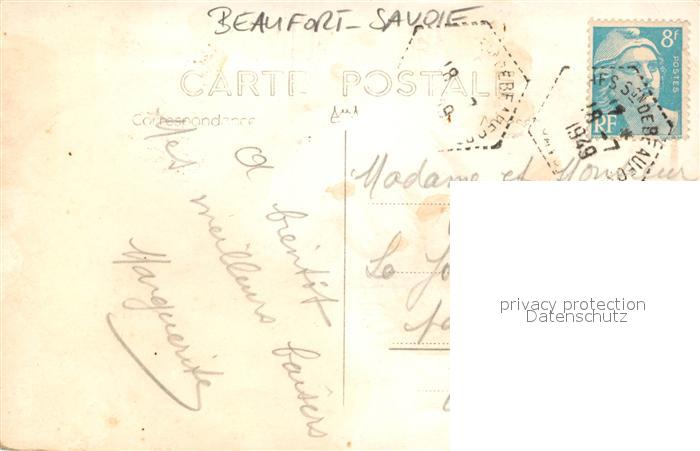 BEAUFORT-SAVOIE
CARTE POSTALE
Correspondance
8f
POSTES
RF
18-7
1949
18
DE BEAUFO
A bientôt
Mes meilleurs baisers
Marguerite
Madame et Monsieur
Le
privacy protection
Datenschutz